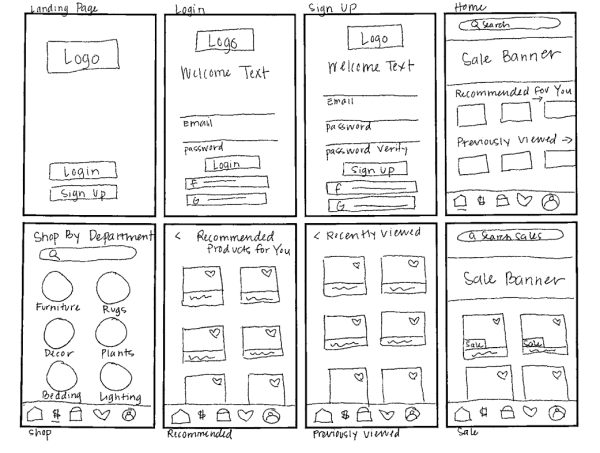 Landing Page
Logo
Login
Sign Up
Login
Logo
Welcome Text
Email
password
Login
F
G
Sign Up
Logo
Welcome Text
Email
password
password verify
Sign Up
F
G
Home
Search
Sale Banner
Recommended For You
Previously Viewed
Shop By Department
Furniture
Rugs
Decor
Plants
Bedding
Lighting
$
Shop
< Recommended
Products for You
$
Recommended
< Recently Viewed
$
Previously Viewed
Search Sales
Sale Banner
Sale
Sale
$
Sale